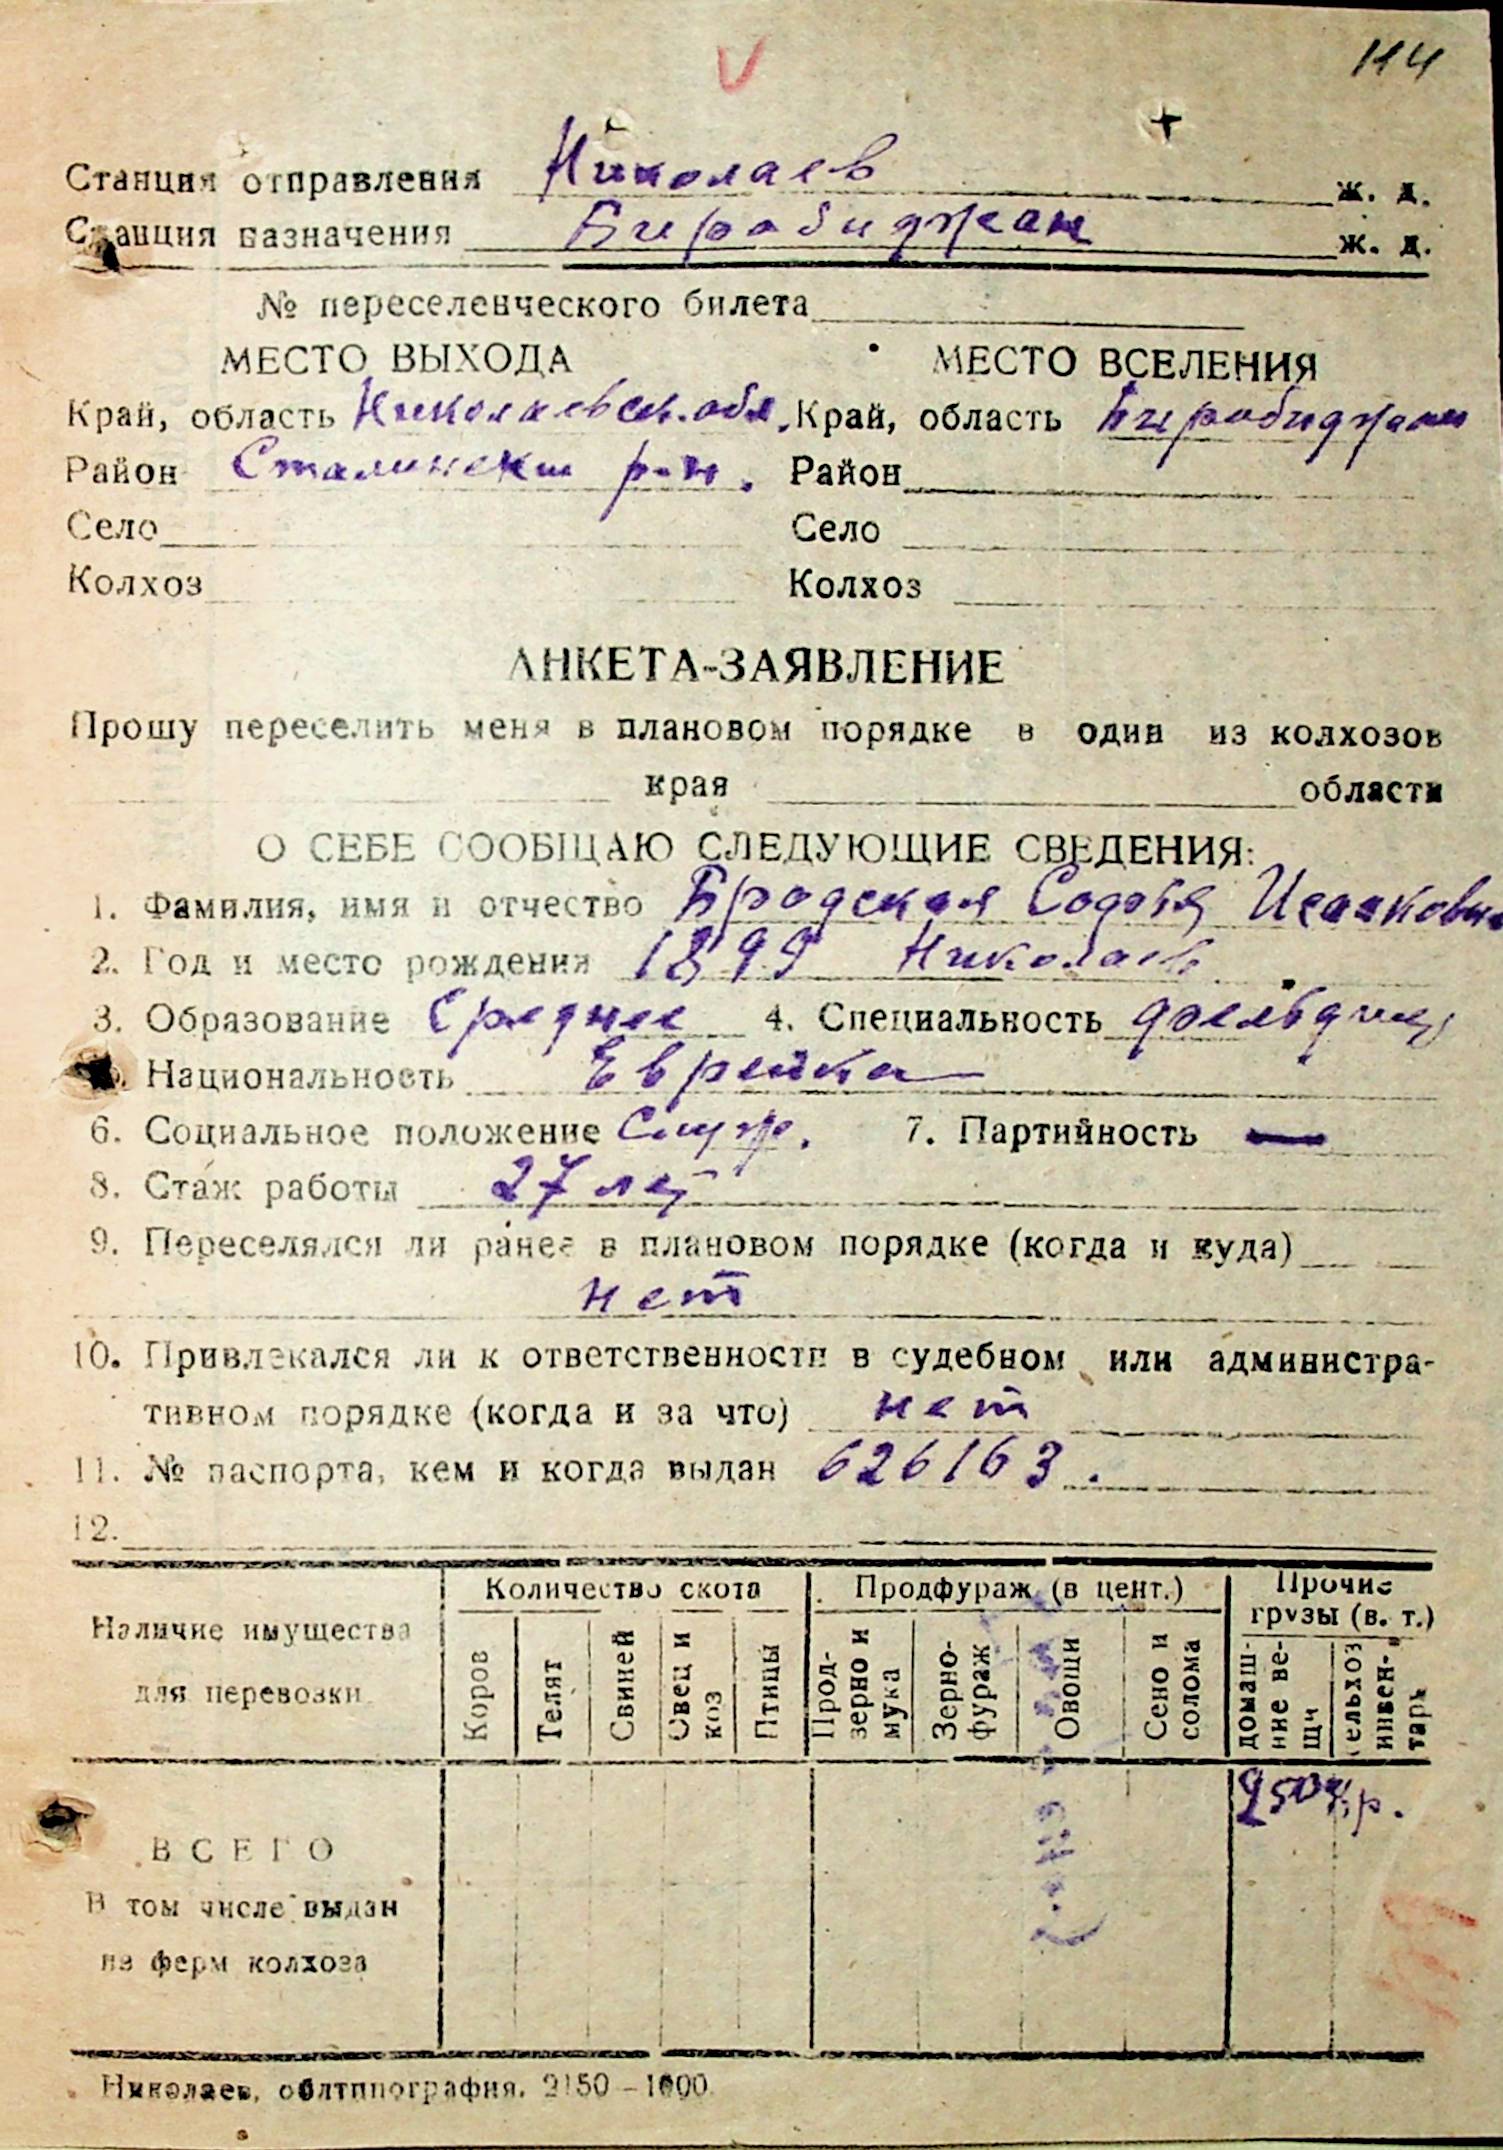 114
Станция отправления Николаев ж. д.
Станция назначения Биробиджан ж. д.
№ переселенческого билета
МЕСТО ВЫХОДА МЕСТО ВСЕЛЕНИЯ
Край, область Николаевск. обл. Край, область Биробиджан
Район Сталинский р-н. Район
Село Село
Колхоз Колхоз
АНКЕТА-ЗАЯВЛЕНИЕ
Прошу переселить меня в плановом порядке в один из колхозов
края области
О СЕБЕ СООБЩАЮ СЛЕДУЮЩИЕ СВЕДЕНИЯ:
1. Фамилия, имя и отчество Бродская Софья Исааковна
2. Год и место рождения 1899 Николаев
3. Образование Среднее 4. Специальность фельдшер
5. Национальность Еврейка
6. Социальное положение Служ. 7. Партийность —
8. Стаж работы 27 лет
9. Переселялся ли ранее в плановом порядке (когда и куда)
нет
10. Привлекался ли к ответственности в судебном или администра-
тивном порядке (когда и за что) нет
11. № паспорта, кем и когда выдан 626163.
12.
Количество скота Продфураж (в цент.) Прочие грузы (в. т.)
Наличие имущества для перевозки
Коров Телят Свиней Овец и коз Птицы Прод-зерно и мука Зерно-фураж Овощи Сено и солома домаш-ние ве-щи сельхоз инвен-тарь
ВСЕГО
В том числе выдан
на ферм колхоза
Николаев, облтипография. 2150–1000